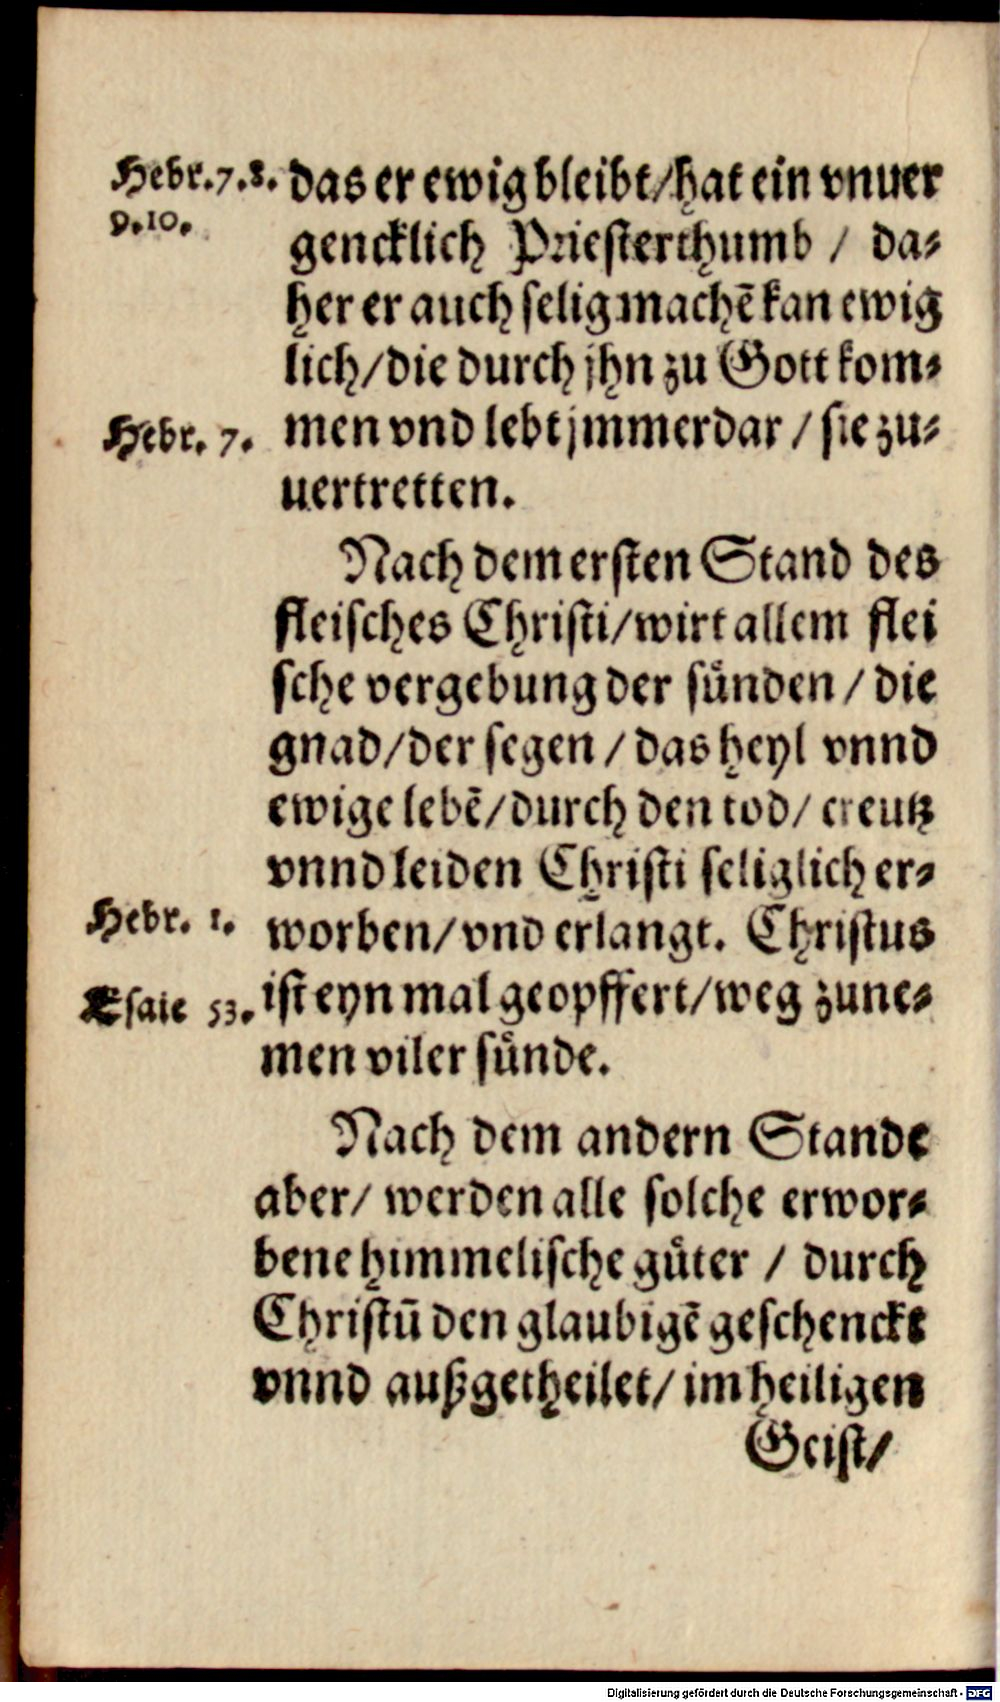 Hebr. 7. 8. das er ewig bleibt/hat ein vnuer
9. 10. gencklich Priesterthumb / da⸗
her er auch selig machē kan ewig
lich/die durch jhn zu Gott kom⸗
Hebr. 7. men vnd lebt jmmerdar / sie zu⸗
uertretten.
Nach dem ersten Stand des
fleisches Christi/wirt allem flei
sche vergebung der sünden / die
gnad/der segen / das heyl vnnd
ewige lebē/durch den tod/ creutz
vnnd leiden Christi seliglich er⸗
Hebr. 1. worben/vnd erlangt. Christus
Esaie 53. ist eyn mal geopffert/weg zune⸗
men viler sünde.
Nach dem andern Stande
aber/ werden alle solche erwor⸗
bene himmelische güter / durch
Christū den glaubigē geschenckt
vnnd außgetheilet/ im heiligen
Geist/
Digitalisierung gefördert durch die Deutsche Forschungsgemeinschaft - DFG